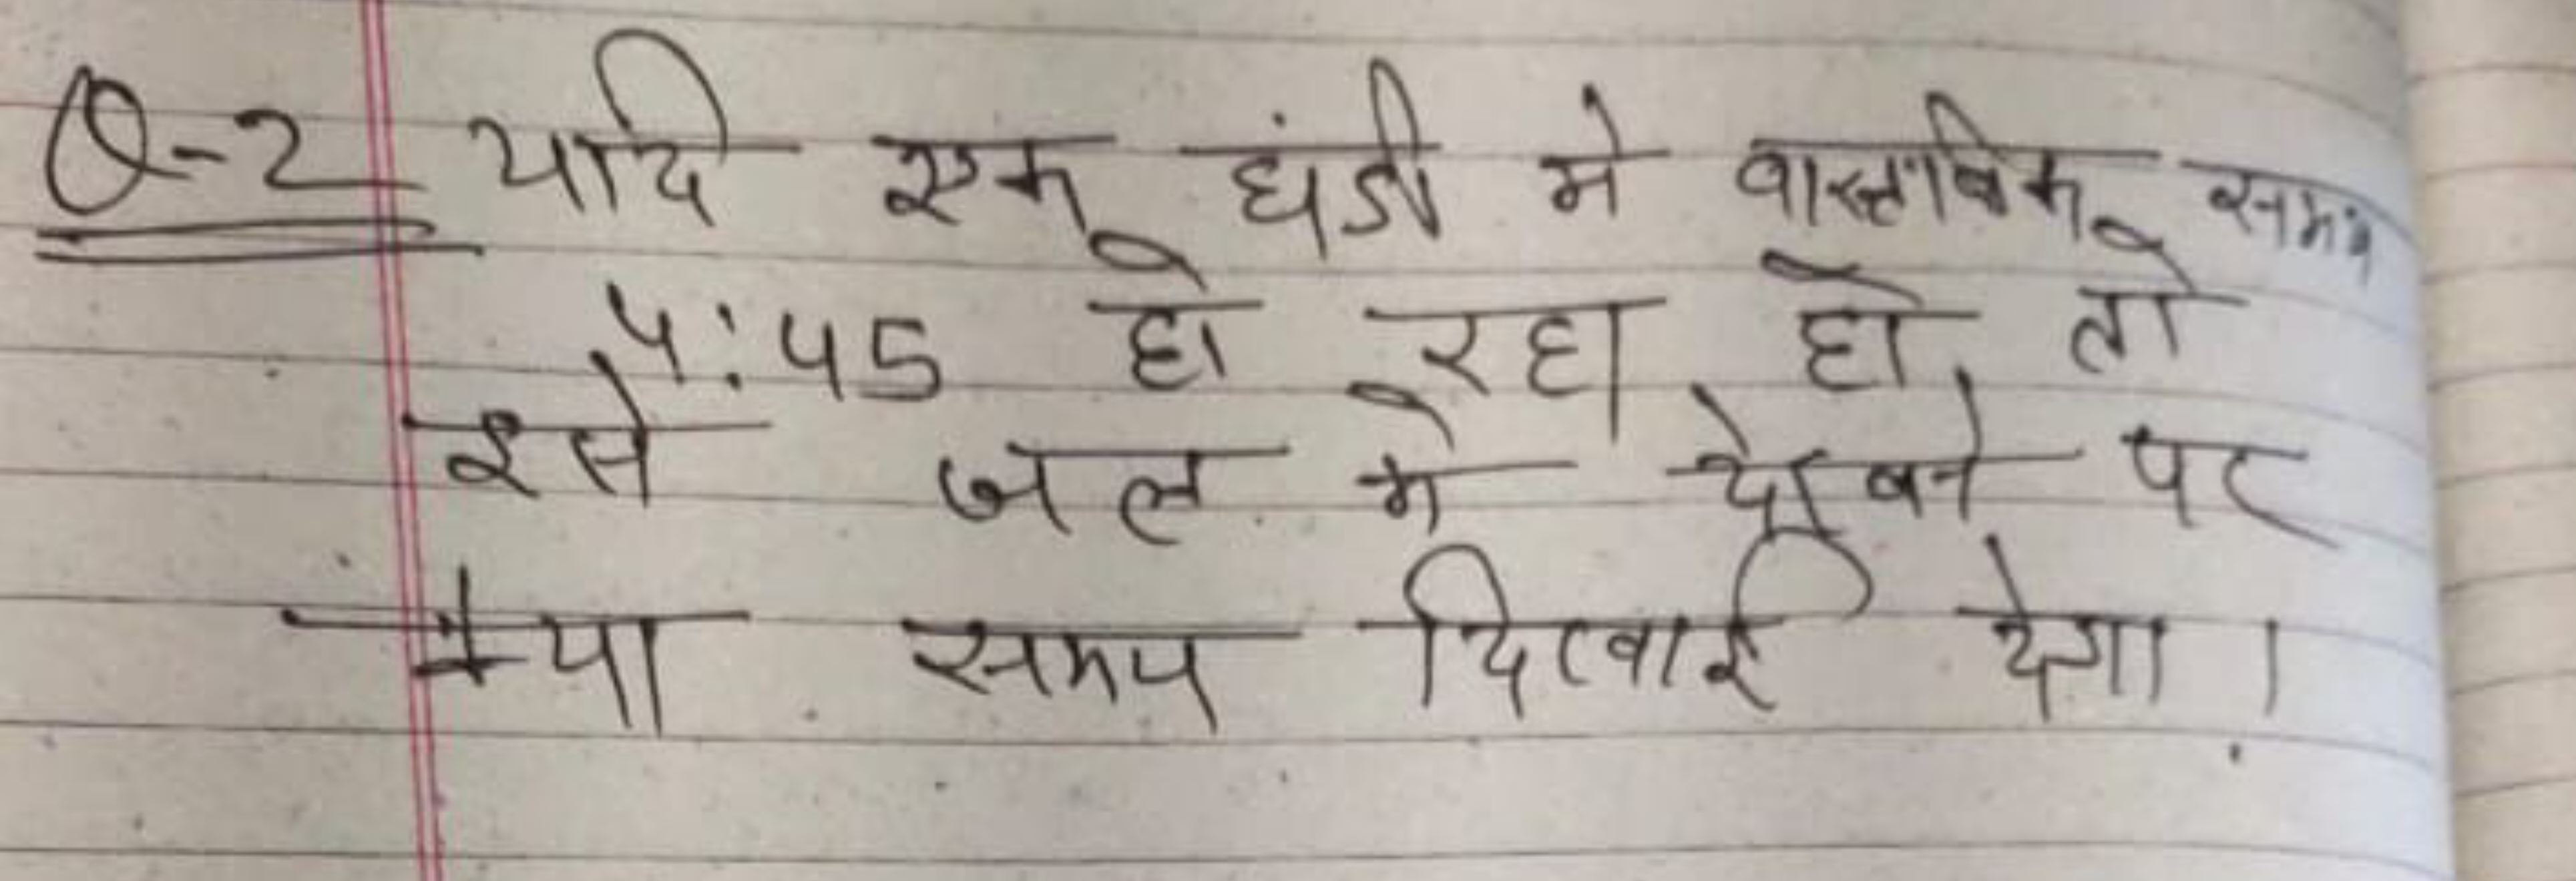 Q-2 यदि एक घंडी मे वास्तविक समय
4:45 हो रहा हो, तो
इसे जल मे देखने पर
क्या समय दिखाई देगा।